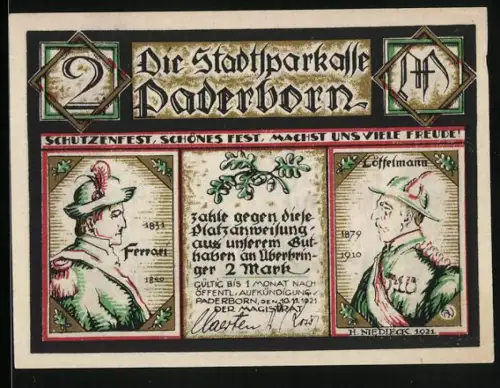 2
Die Stadtsparkasse
Paderborn
M
SCHÜTZENFEST, SCHÖNES FEST, MACHST UNS VIELE FREUDE!
1831
Ferrari
zahle gegen diese
Platzanweisung
aus unserem Gut-
haben an Überbrin-
ger 2 Mark
GÜLTIG BIS 1 MONAT NACH
ÖFFENTL. AUFKÜNDIGUNG
PADERBORN, DEN 10.12.1921
DER MAGISTRAT
Löffelmann
1879
1910
H. NIEDIECK 1921